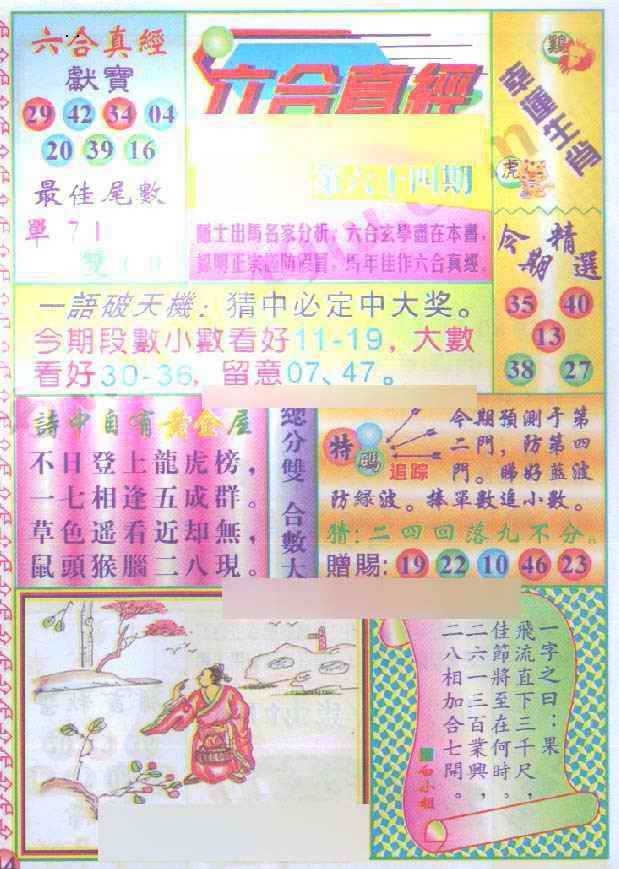 六合真經
獻寶
29 42 34 04
20 39 16
最佳尾數
單71
雙
六合真經
第六十四期
隱士出馬名家分析，六合玄學盡在本書，
認明正宗謹防假冒，馬年佳作六合真經。
雞
幸運生肖
虎
今期精選
35 40
13
38 27
一語破天機：猜中必定中大奖。
今期段數小數看好11-19，大數
看好30-36，留意07、47。
詩中自有黃金屋
不日登上龍虎榜，
一七相逢五成群。
草色遥看近却無，
鼠頭猴腦二八現。
總分雙 合數大
特碼
追踪
今期預測于第
二門，防第四
門。睇好藍波
防綠波。捧單數追小數。
猜：二四回落九不分。
贈賜：19 22 10 46 23
一字之曰：果
飛流直下三千尺，
佳節將至在何時。
二六一三百業興，
二八相加合七開。
白小姐